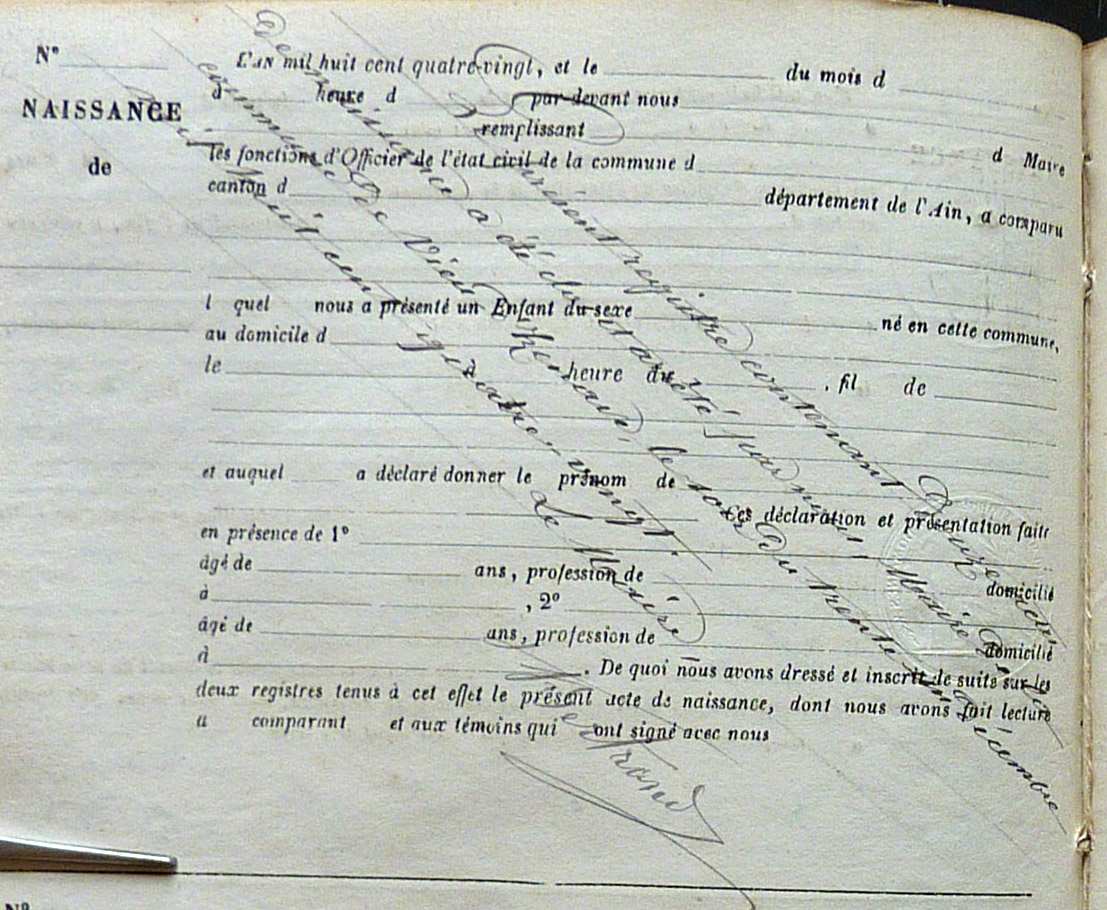 N°
NAISSANCE
de
L'AN mil huit cent quatre-vingt, et le du mois d
d heure d par-devant nous
remplissant d Maire
les fonctions d'Officier de l'état civil de la commune d
canton d département de l'Ain, a comparu
l quel nous a présenté un Enfant du sexe né en cette commune,
au domicile d
le à heure du , fil de
et auquel a déclaré donner le prénom de
Ces déclaration et présentation faite
en présence de 1°
âgé de ans, profession de domicilié
à , 2°
âgé de ans, profession de domicilié
à . De quoi nous avons dressé et inscrit de suite sur les
deux registres tenus à cet effet le présent acte de naissance, dont nous avons fait lecture
a comparant et aux témoins qui ont signé avec nous
Le présent registre contenant Douze actes
De naissance a été clos et arrêté par nous Maire De la
commune de Vieu le soir Du trente un Décembre
mil huit cent quatre-vingt.
Le Maire
N°